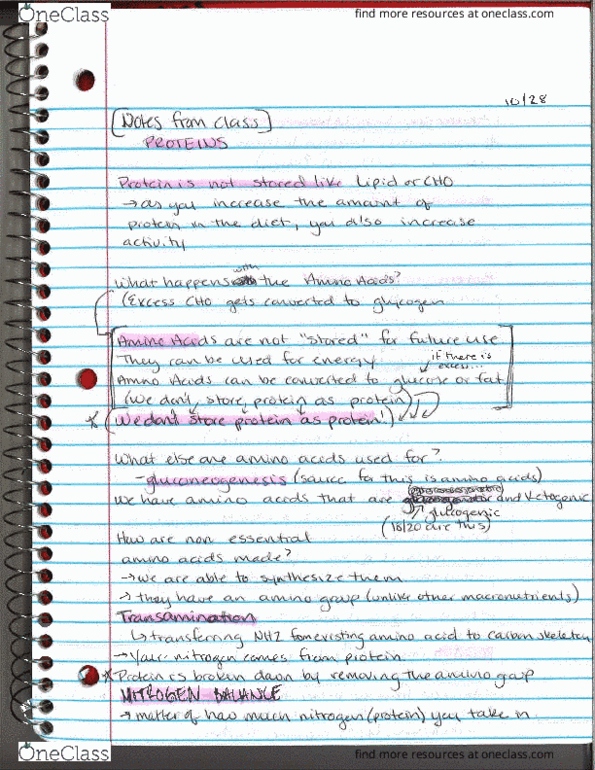 OneClass
find more resources at oneclass.com
10/28
[Notes from class]
PROTEINS
Protein is not stored like Lipid or CHO
→ as you increase the amount of
protein in the diet, you also increase
activity
What happens with the Amino Acids?
(Excess CHO gets converted to glycogen
Amino Acids are not "stored" for future use
They can be used for energy
if there is
excess...
Amno Acids can be converted to glucose or fat
(We don't store protein as protein)
* (We don't store protein as protein!)
What else are amino acids used for?
- gluconeogenesis (source for this is amino acids)
We have amino acids that are and Ketogenic
glucogenic
(18/20 are this)
How are non essential
amino acids made?
→ we are able to synthesize them
→ they have an amino group (unlike other macronutrients)
Transamination
↳ transferring NH2 from existing amino acid to carbon skeleton
→ Your nitrogen comes from protein
* Protein is broken down by removing the amino group
NITROGEN BALANCE
→ matter of how much nitrogen (protein) you take in
OneClass
find more resources at oneclass.com